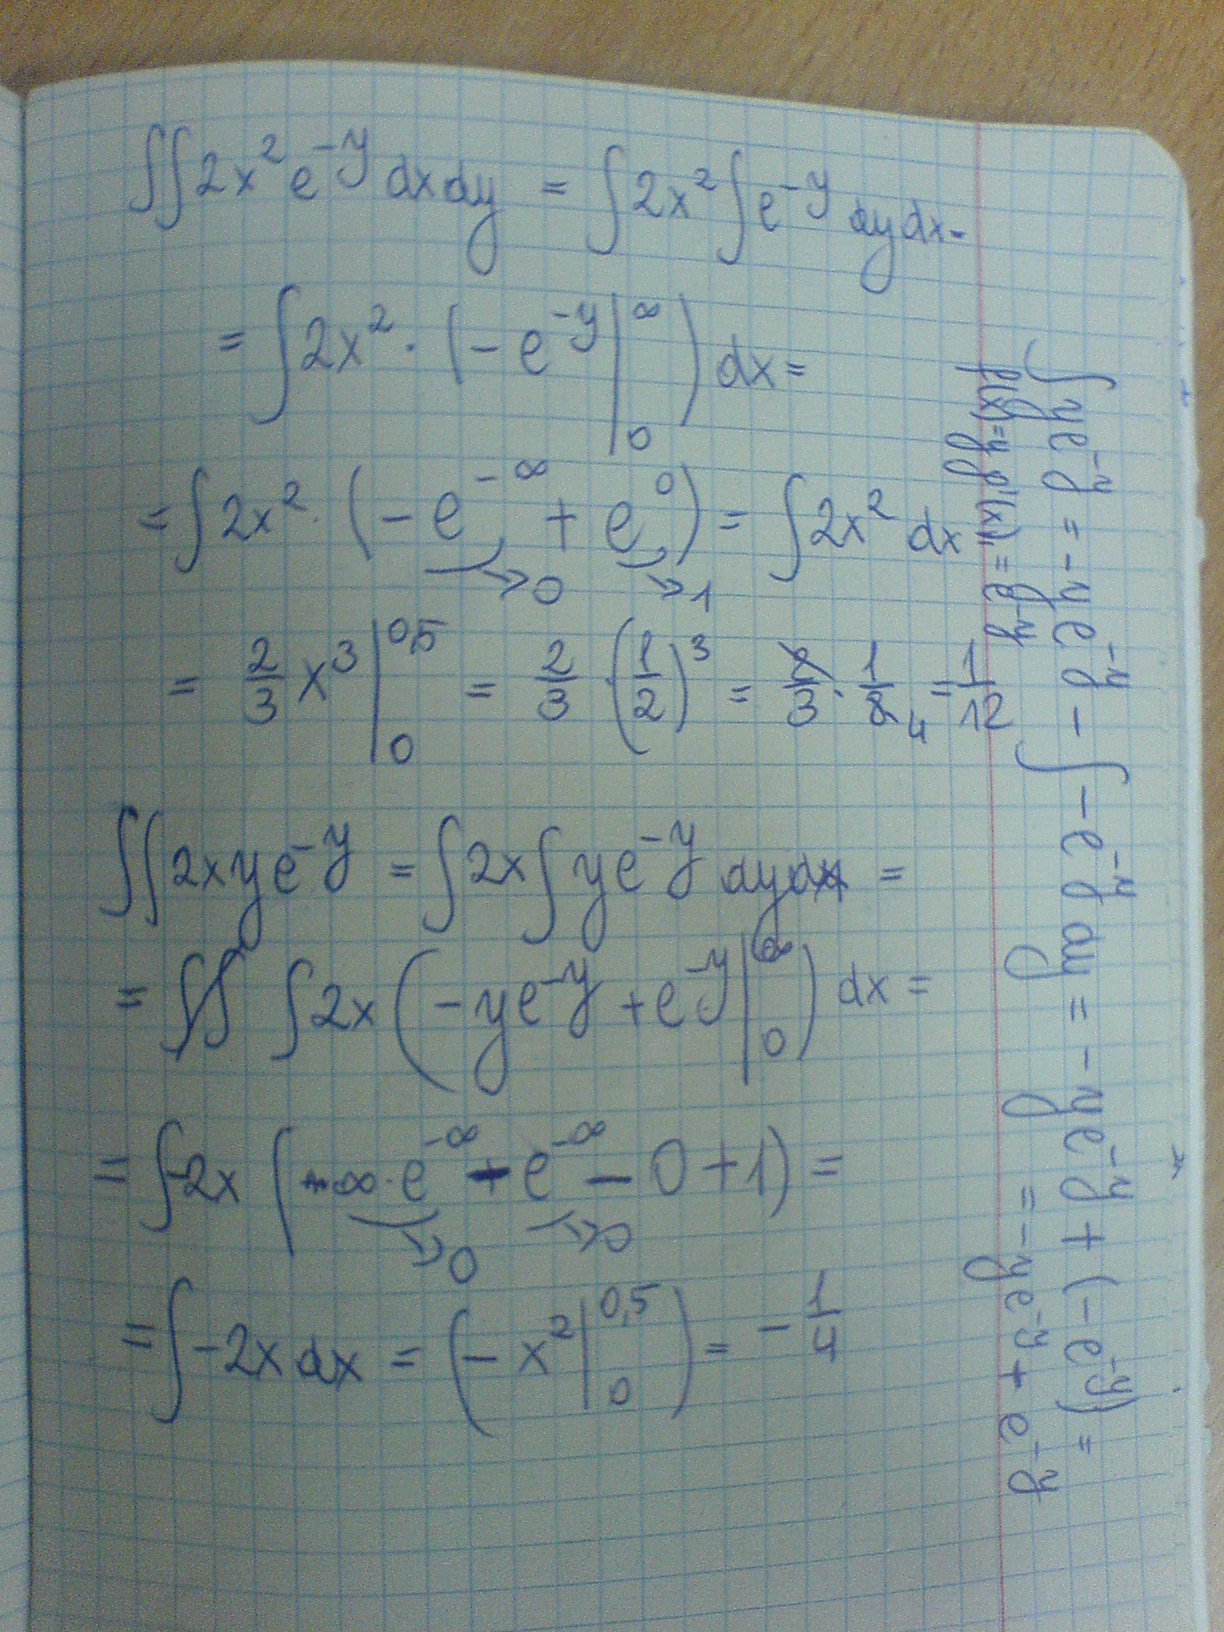 ∫∫2x²e^{-y} dxdy = ∫2x²∫e^{-y} dydx =
= ∫2x² · (-e^{-y}|_0^∞) dx =
= ∫2x² · (-e^{-∞} + e^0) = ∫2x² dx
→0 →1
= 2/3 x³ |_0^{0,5} = 2/3 · (1/2)³ = 2/3 · 1/8 4 = 1/12
∫∫2xye^{-y} = ∫2x∫ye^{-y} dydx =
= ∫2x(-ye^{-y} + e^{-y}|_0^∞) dx =
= ∫-2x(-∞·e^{-∞} + e^{-∞} - 0 + 1) =
→0 →0
= ∫-2x dx = (-x²|_0^{0,5}) = -1/4
∫ye^{-y} = -ye^{-y} - ∫-e^{-y} dy = -ye^{-y} + (-e^{-y}) =
f(x)=y g'(x) = e^{-y}
= -ye^{-y} + e^{-y}